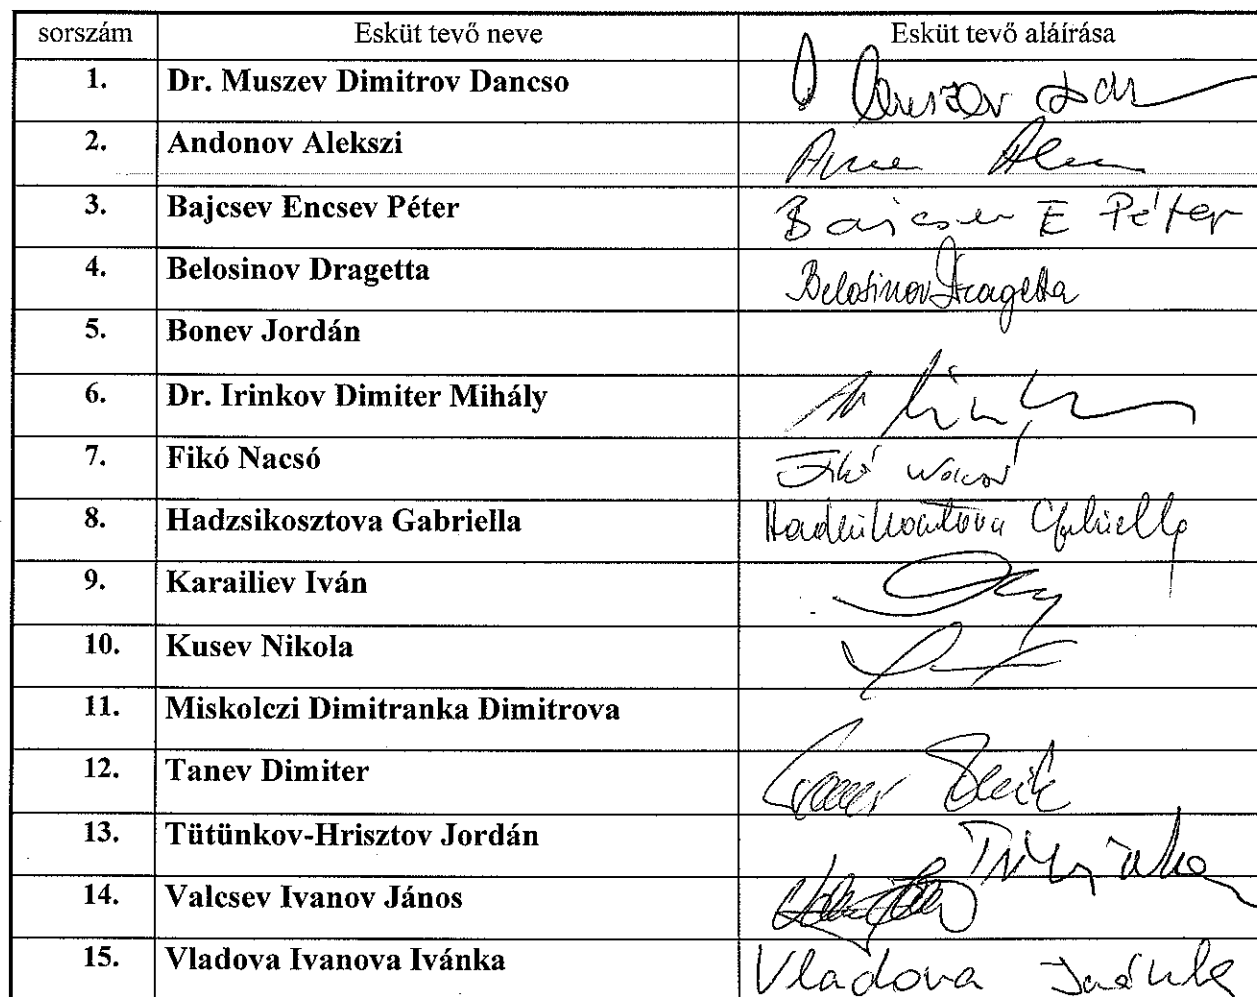 sorszám Esküt tevő neve Esküt tevő aláírása
1. Dr. Muszev Dimitrov Dancso
2. Andonov Alekszi
3. Bajcsev Encsev Péter Bajcsev E Péter
4. Belosinov Dragetta Belosinov Dragetta
5. Bonev Jordán
6. Dr. Irinkov Dimiter Mihály
7. Fikó Nacsó Fikó Nacsó
8. Hadzsikosztova Gabriella Hadzsikosztova Gabriella
9. Karailiev Iván
10. Kusev Nikola
11. Miskolczi Dimitranka Dimitrova
12. Tanev Dimiter
13. Tütünkov-Hrisztov Jordán
14. Valcsev Ivanov János
15. Vladova Ivanova Ivánka Vladova Ivánka